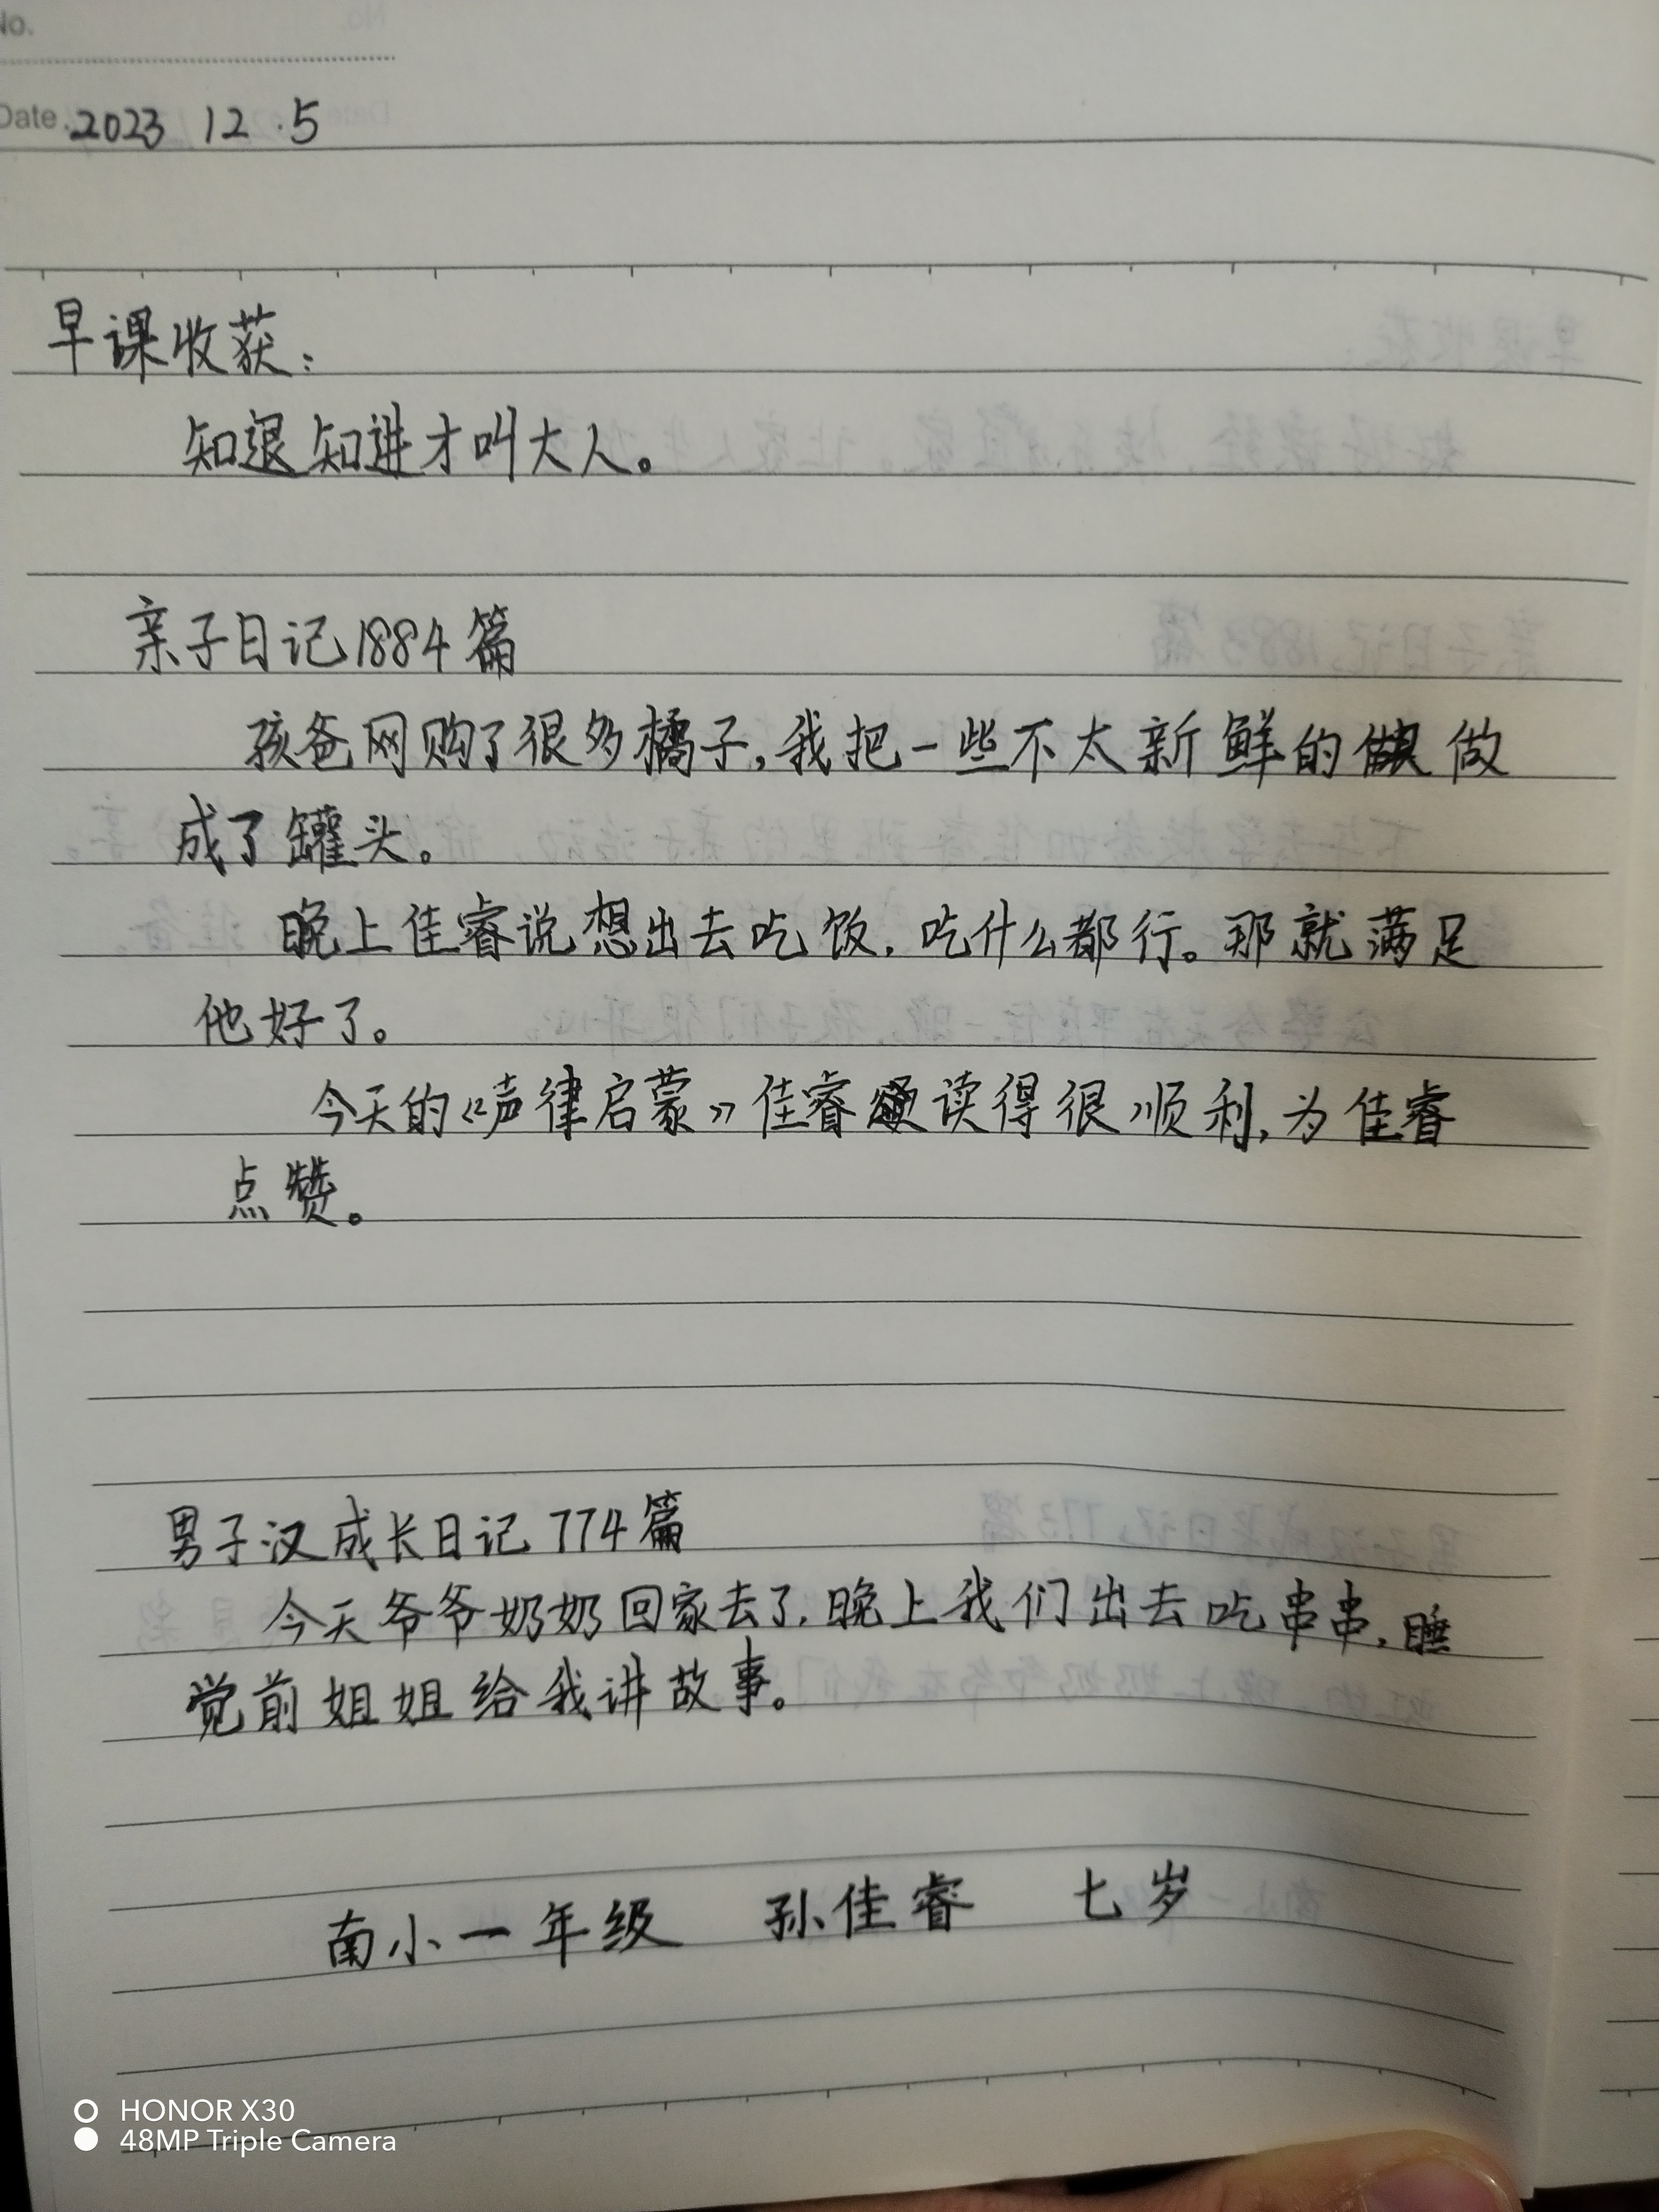 No.
Date. 2023 12.5
早课收获:
知退知进才叫大人。
亲子日记1884篇
孩爸网购了很多橘子,我把一些不太新鲜的做
成了罐头。
晚上佳睿说想出去吃饭,吃什么都行。那就满足
他好了。
今天的《声律启蒙》佳睿读得很顺利,为佳睿
点赞。
男子汉成长日记774篇
今天爷爷奶奶回家去了,晚上我们出去吃串串,睡
觉前姐姐给我讲故事。
南小一年级 孙佳睿 七岁
HONOR X30
48MP Triple Camera